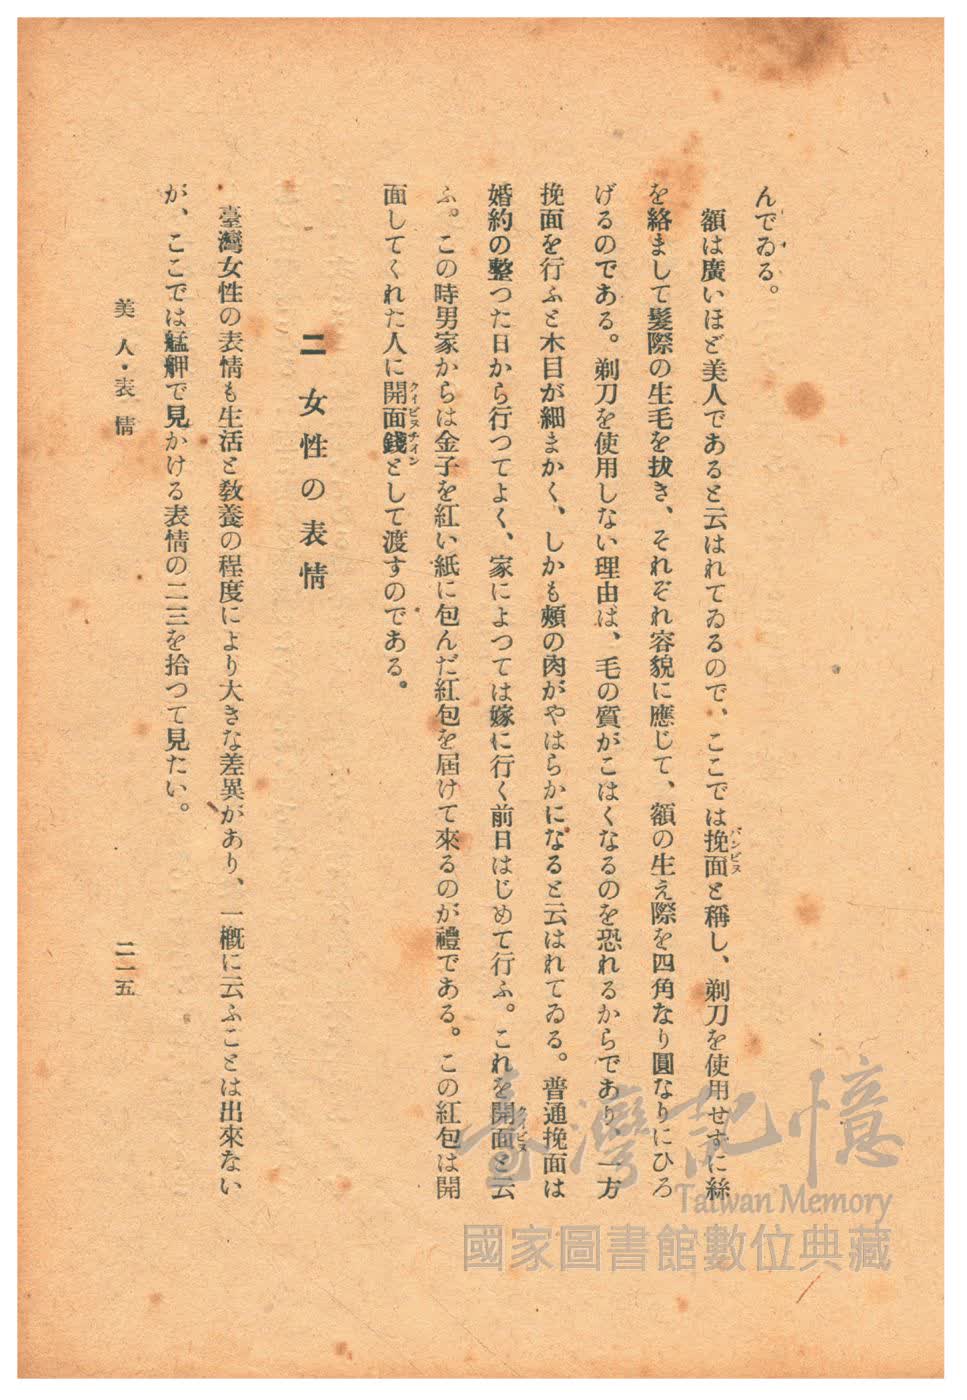 んでゐる。
額は廣いほど美人であると云はれてゐるので、ここでは挽面と稱し、剃刀を使用せずに絲
バンビヌ
を絡まして髮際の生毛を拔き、それぞれ容貌に應じて、額の生え際を四角なり圓なりにひろ
げるのである。剃刀を使用しない理由は、毛の質がこはくなるのを恐れるからであり、一方
挽面を行ふと木目が細まかく、しかも頰の肉がやはらかになると云はれてゐる。普通挽面は
婚約の整つた日から行つてよく、家によつては嫁に行く前日はじめて行ふ。これを開面と云
クイビヌ
ふ。この時男家からは金子を紅い紙に包んだ紅包を屆けて來るのが禮である。この紅包は開
面してくれた人に開面錢として渡すのである。
クイビヌチイン
二 女性の表情
臺灣女性の表情も生活と敎養の程度により大きな差異があり、一概に云ふことは出來ない
が、ここでは艋舺で見かける表情の二三を拾つて見たい。
美人・表情
二一五
臺灣記憶
Taiwan Memory
國家圖書館數位典藏